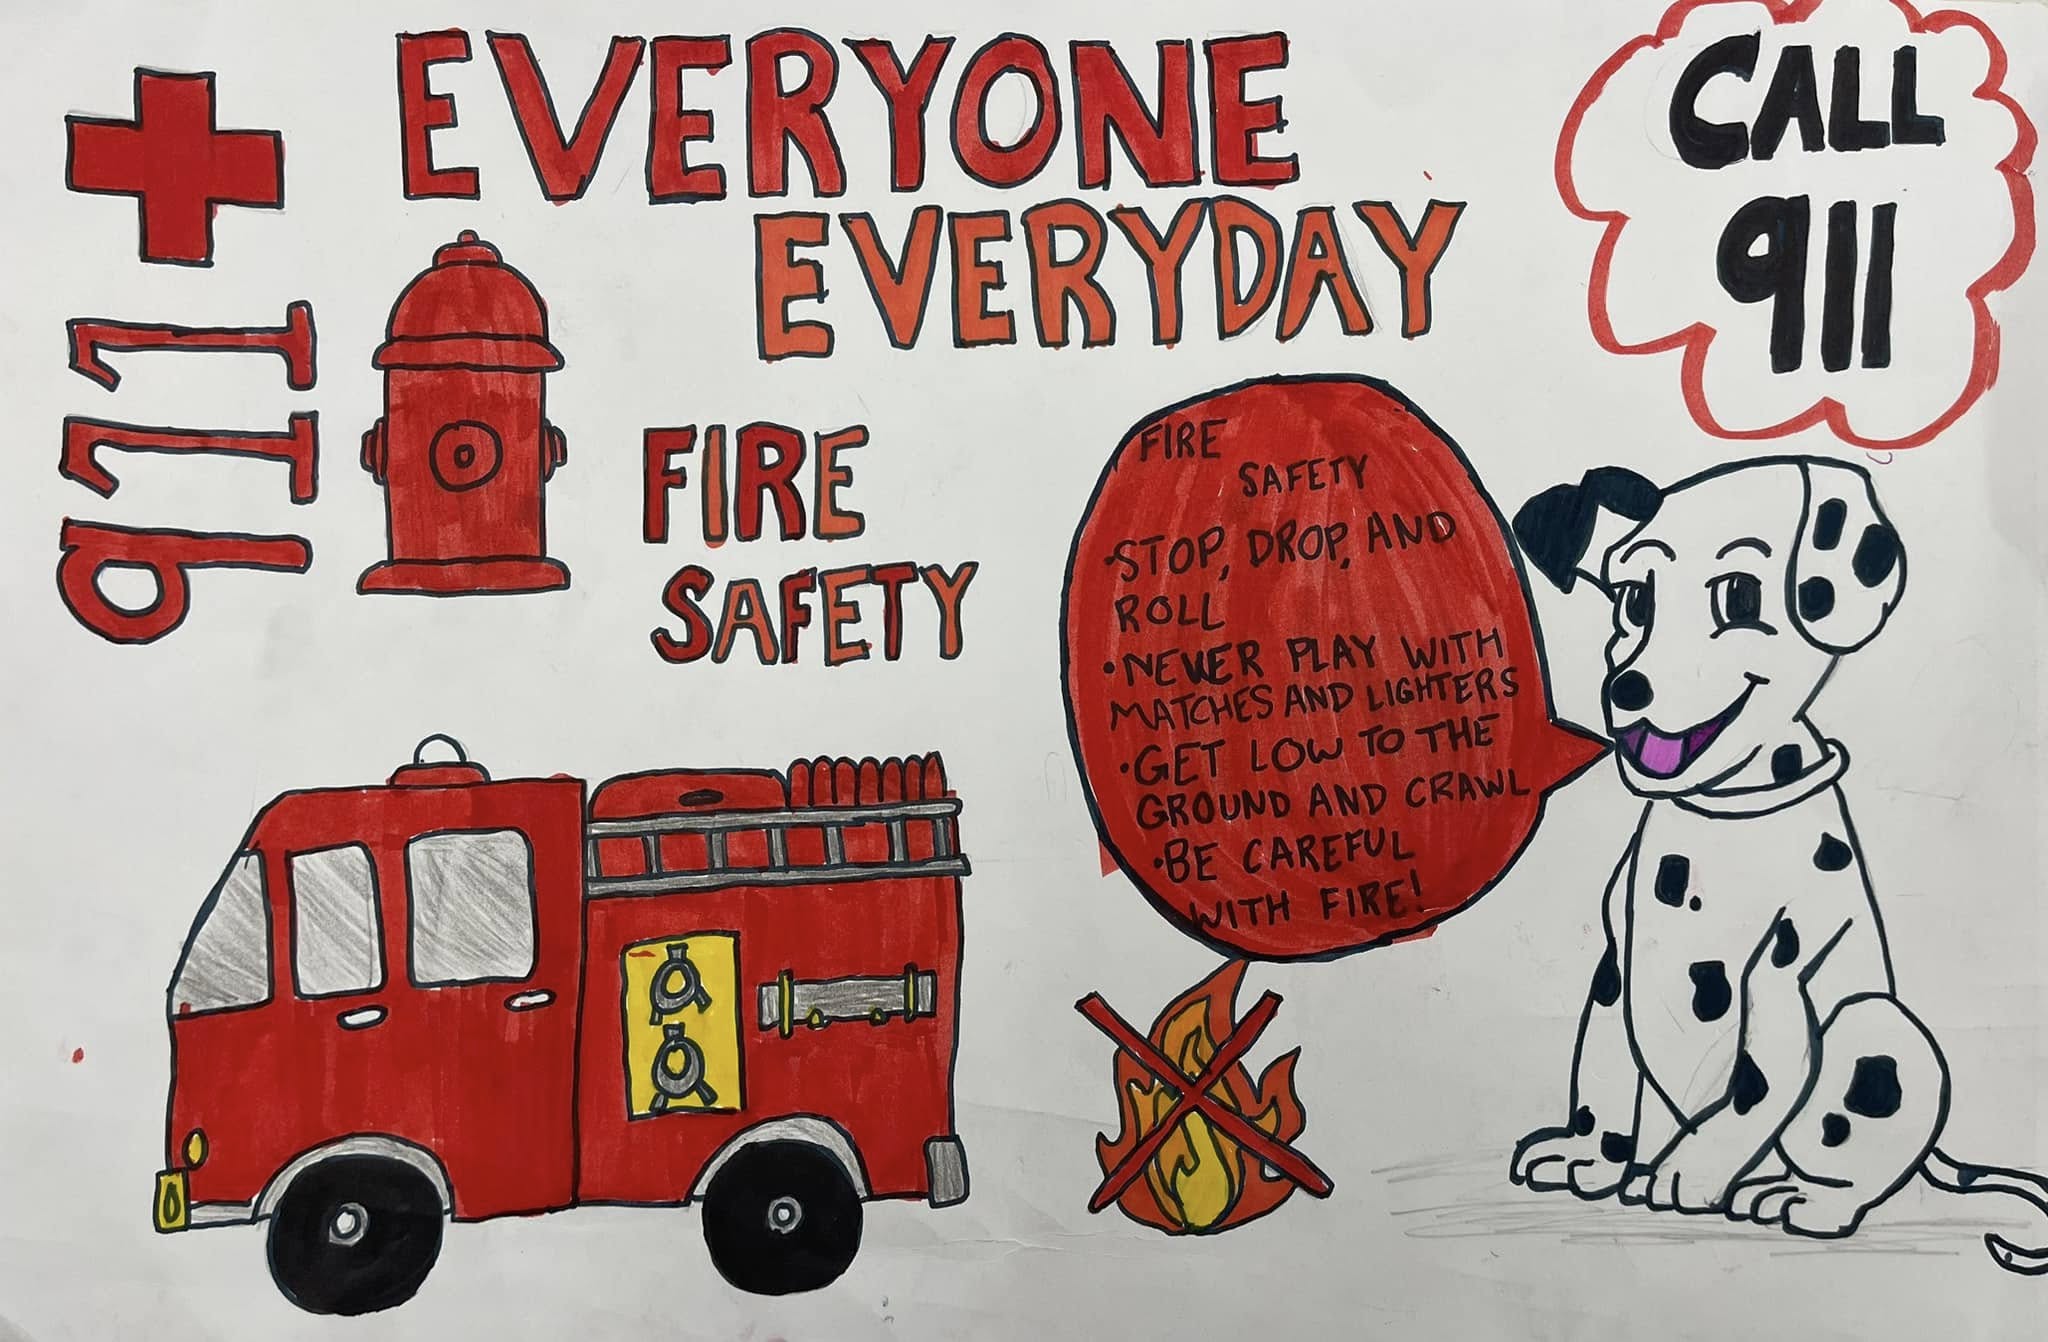 EVERYONE
EVERYDAY
CALL
911
911
FIRE
SAFETY
FIRE
SAFETY
•STOP, DROP, AND
ROLL
•NEVER PLAY WITH
MATCHES AND LIGHTERS
•GET LOW TO THE
GROUND AND CRAWL
•BE CAREFUL
WITH FIRE!